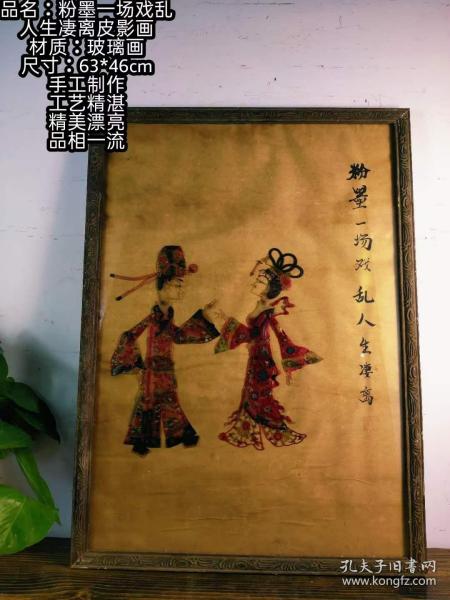 品名：粉墨一场戏乱
人生凄离皮影画
材质：玻璃画
尺寸：63*46cm
手工制作
工艺精湛
精美漂亮
品相一流
粉墨一场戏乱人生凄离
孔夫子旧书网
www.kongfz.com